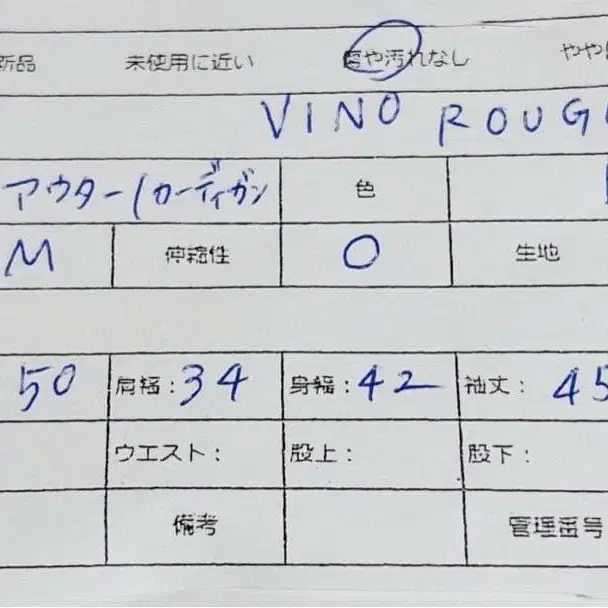 新品 未使用に近い 傷や汚れなし やや
VINO ROUG
アウター/カーディガン 色
M 伸縮性 O 生地
50 肩幅:34 身幅:42 袖丈:45
ウエスト: 股上: 股下:
備考 管理番号